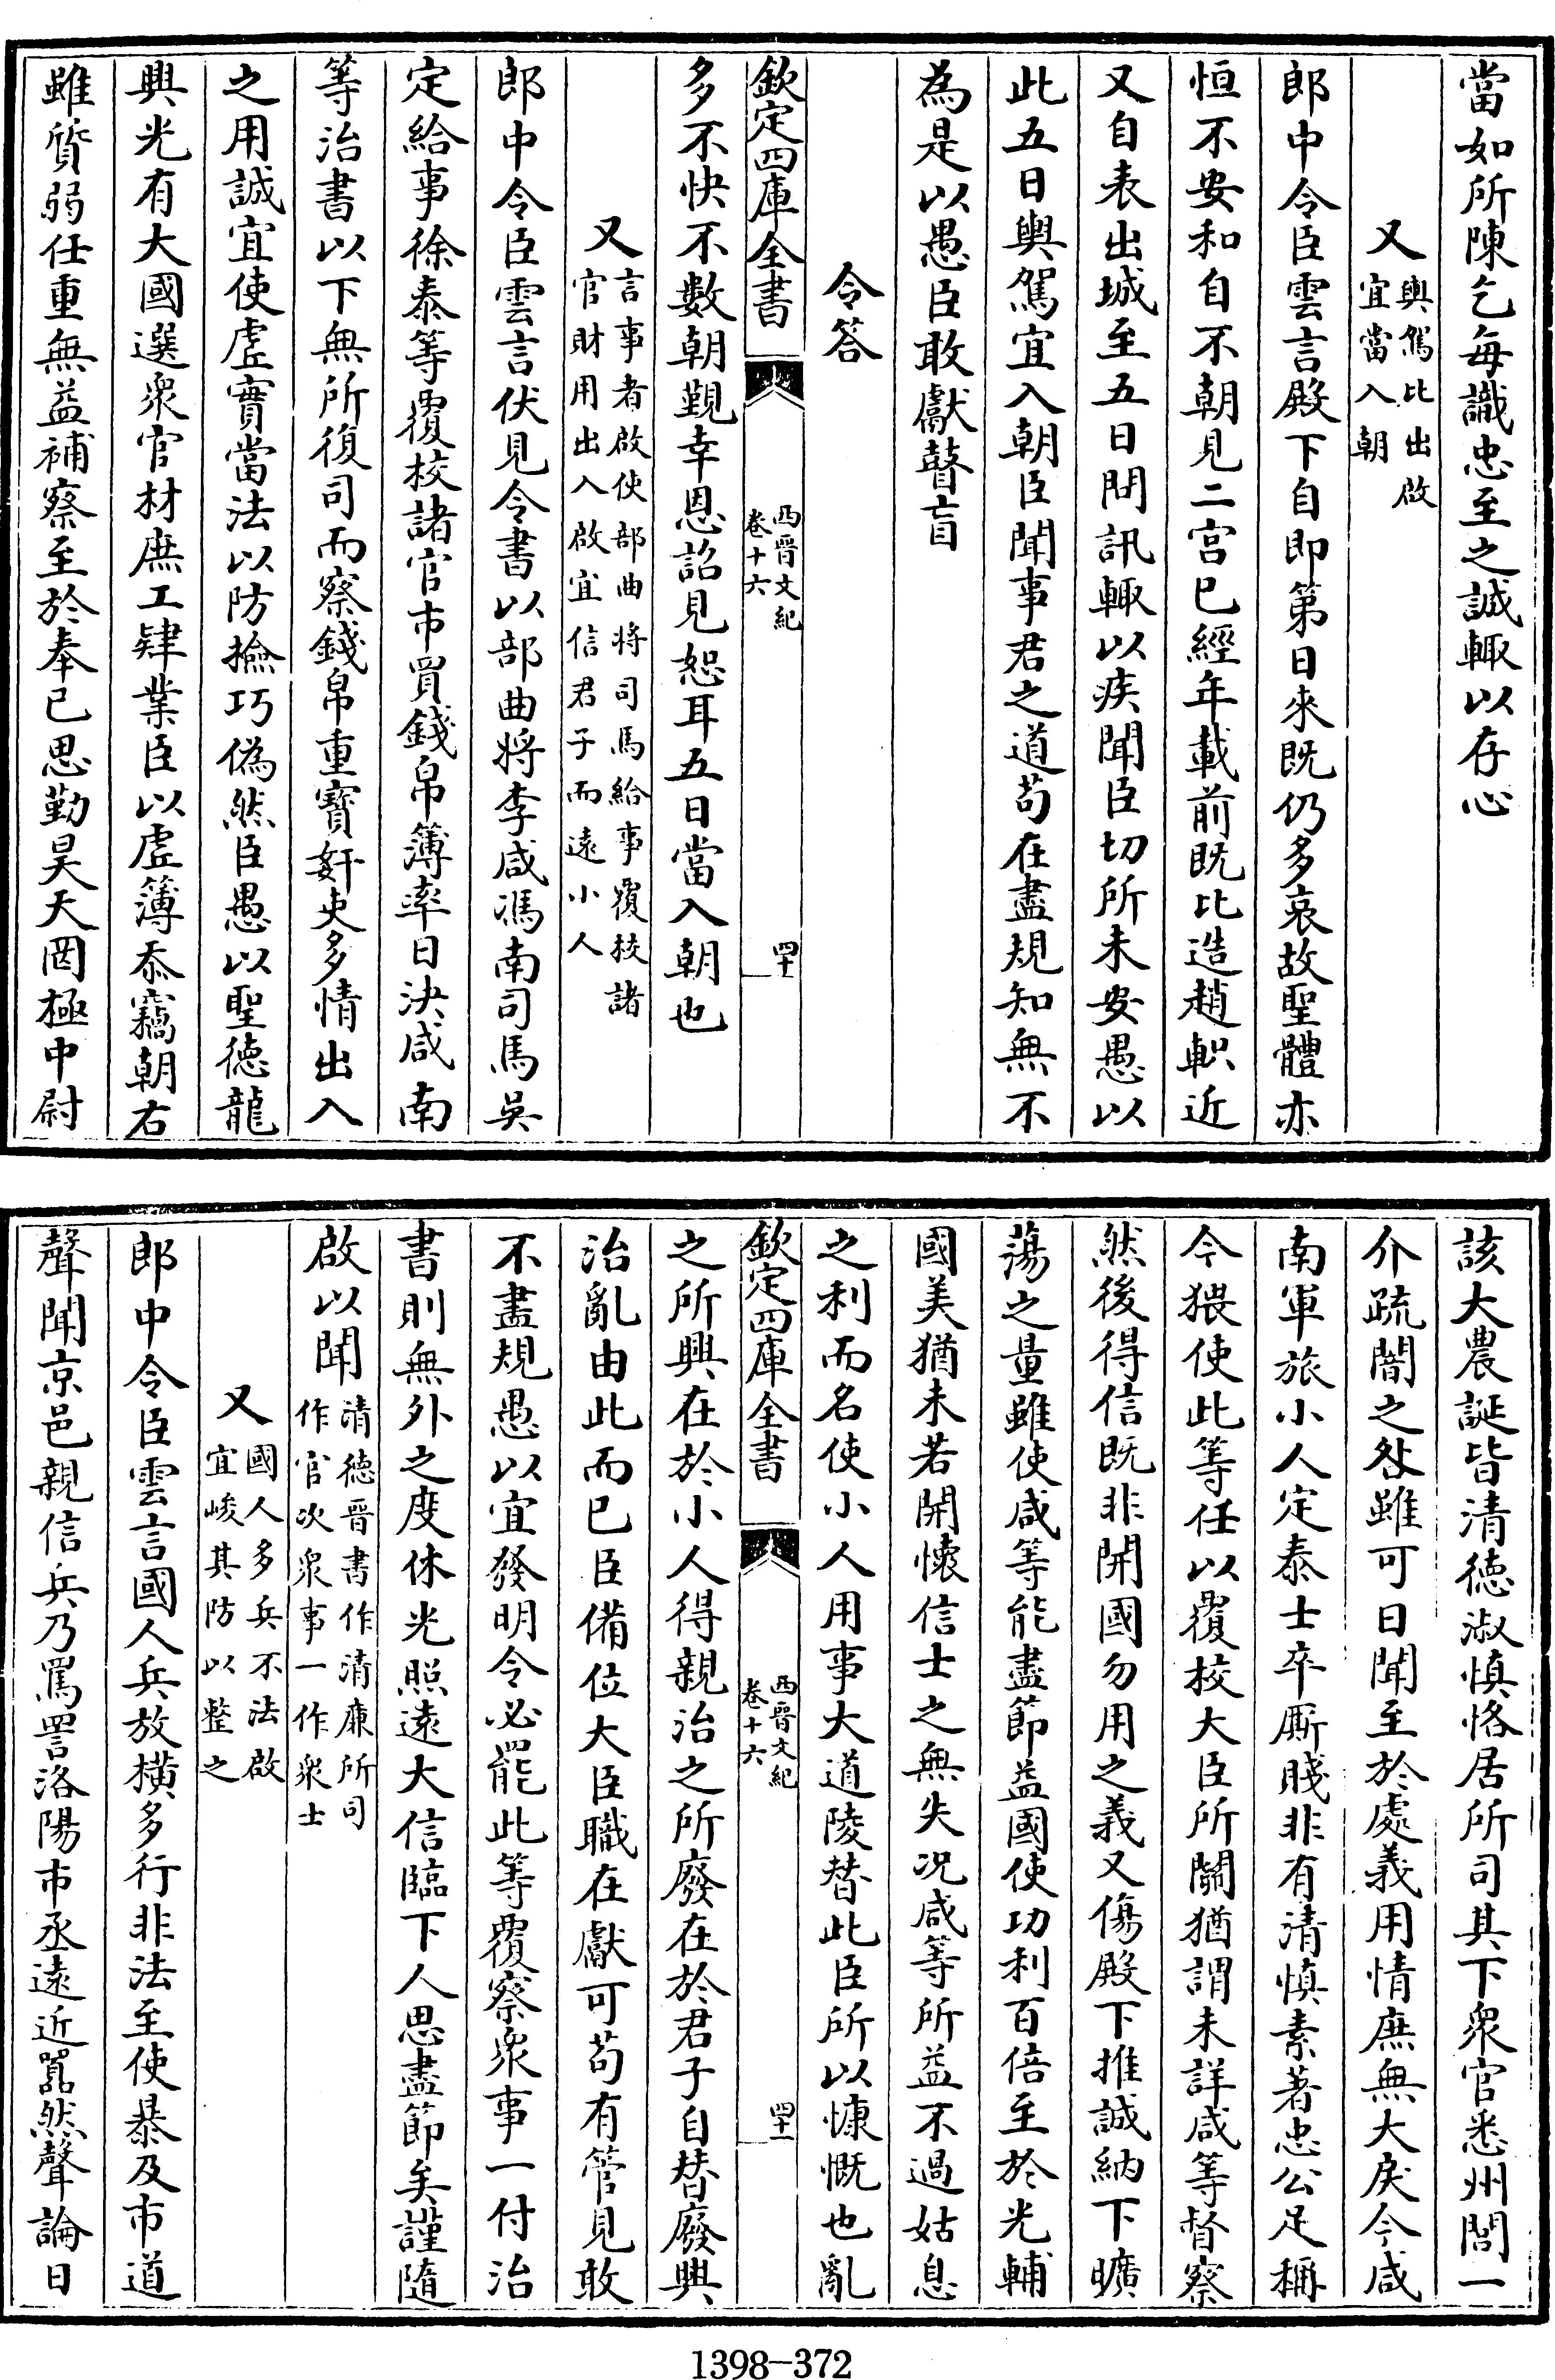 當如所陳乞每識忠至之誠輙以存心
又輿駕比出啟
宜當入朝
郎中令臣雲言殿下自即第日來既仍多哀故聖體亦
恒不安和自不朝見二宫已經年載前既比造趙軹近
又自表出城至五日問訊輙以疾聞臣切所未安愚以
此五日輿駕宜入朝臣聞事君之道苟在盡規知無不
為是以愚臣敢獻瞽盲
令答
欽定四庫全書
西晉文紀
卷十六
四十
多不快不數朝覲幸恩詔見恕耳五日當入朝也
又言事者啟使部曲將司馬給事覆校諸
官財用出入啟宜信君子而遠小人
郎中令臣雲言伏見令書以部曲將李咸馮南司馬吳
定給事徐泰等覆校諸官市買錢帛簿率日決咸南
等治書以下無所復司而察錢帛重寳奸吏多情出入
之用誠宜使虛實當法以防撿巧偽然臣愚以聖德龍
興光有大國選衆官材庶工肄業臣以虛簿忝竊朝右
雖質弱任重無益補察至於奉已思勤昊天罔極中尉
該大農誕皆清德淑慎恪居所司其下衆官悉州閭一
介疏闇之咎雖可日聞至於處義用情庶無大戾今咸
南軍旅小人定泰士卒厮賤非有清慎素著忠公足稱
今猥使此等任以覆校大臣所關猶謂未詳咸等督察
然後得信既非開國勿用之義又傷殿下推誠納下曠
蕩之量雖使咸等能盡節益國使功利百倍至於光輔
國美猶未若開懷信士之無失况咸等所益不過姑息
之利而名使小人用事大道陵替此臣所以慷慨也亂
欽定四庫全書
西晉文紀
卷十六
四十一
之所興在於小人得親治之所廢在於君子自替廢興
治亂由此而已臣備位大臣職在獻可苟有管見敢
不盡規愚以宜發明令必罷此等覆察衆事一付治
書則無外之度休光照遠大信臨下人思盡節矣謹隨
啟以聞清德晉書作清廉所司
作官次衆事一作衆士
又國人多兵不法啟
宜峻其防以整之
郎中令臣雲言國人兵放橫多行非法至使暴及市道
聲聞京邑親信兵乃罵詈洛陽市丞遠近囂然聲論日
1398-372